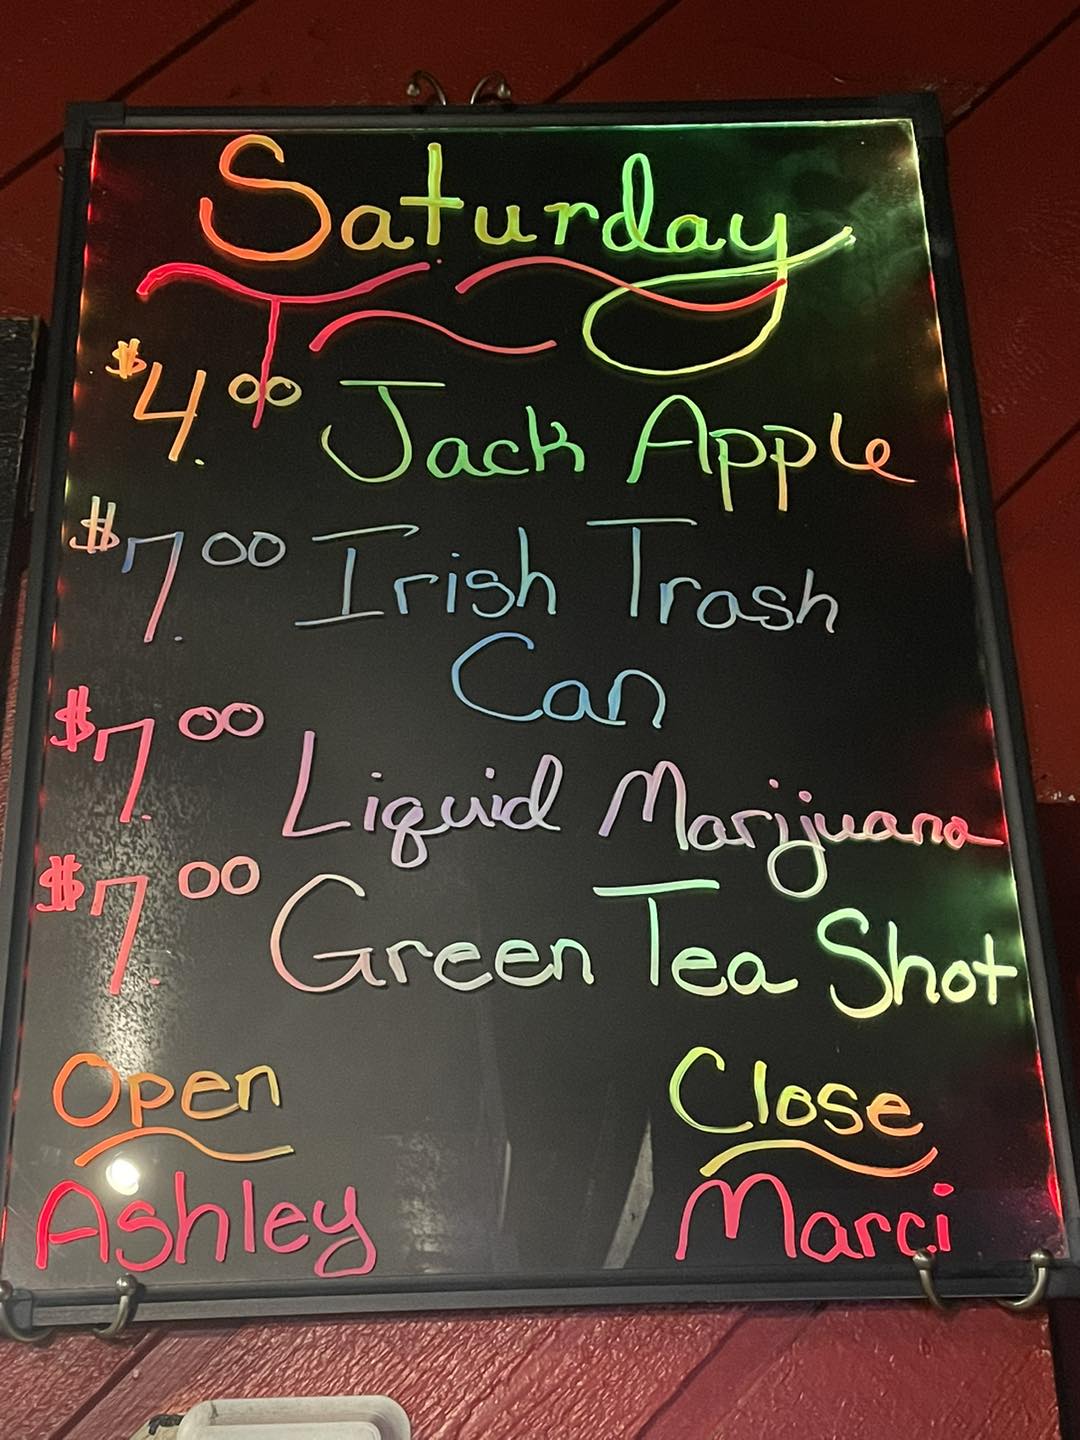 Saturday
$4.00 Jack Apple
$7.00 Irish Trash
Can
$7.00 Liquid Marijuana
$7.00 Green Tea Shot
Open Close
Ashley Marci